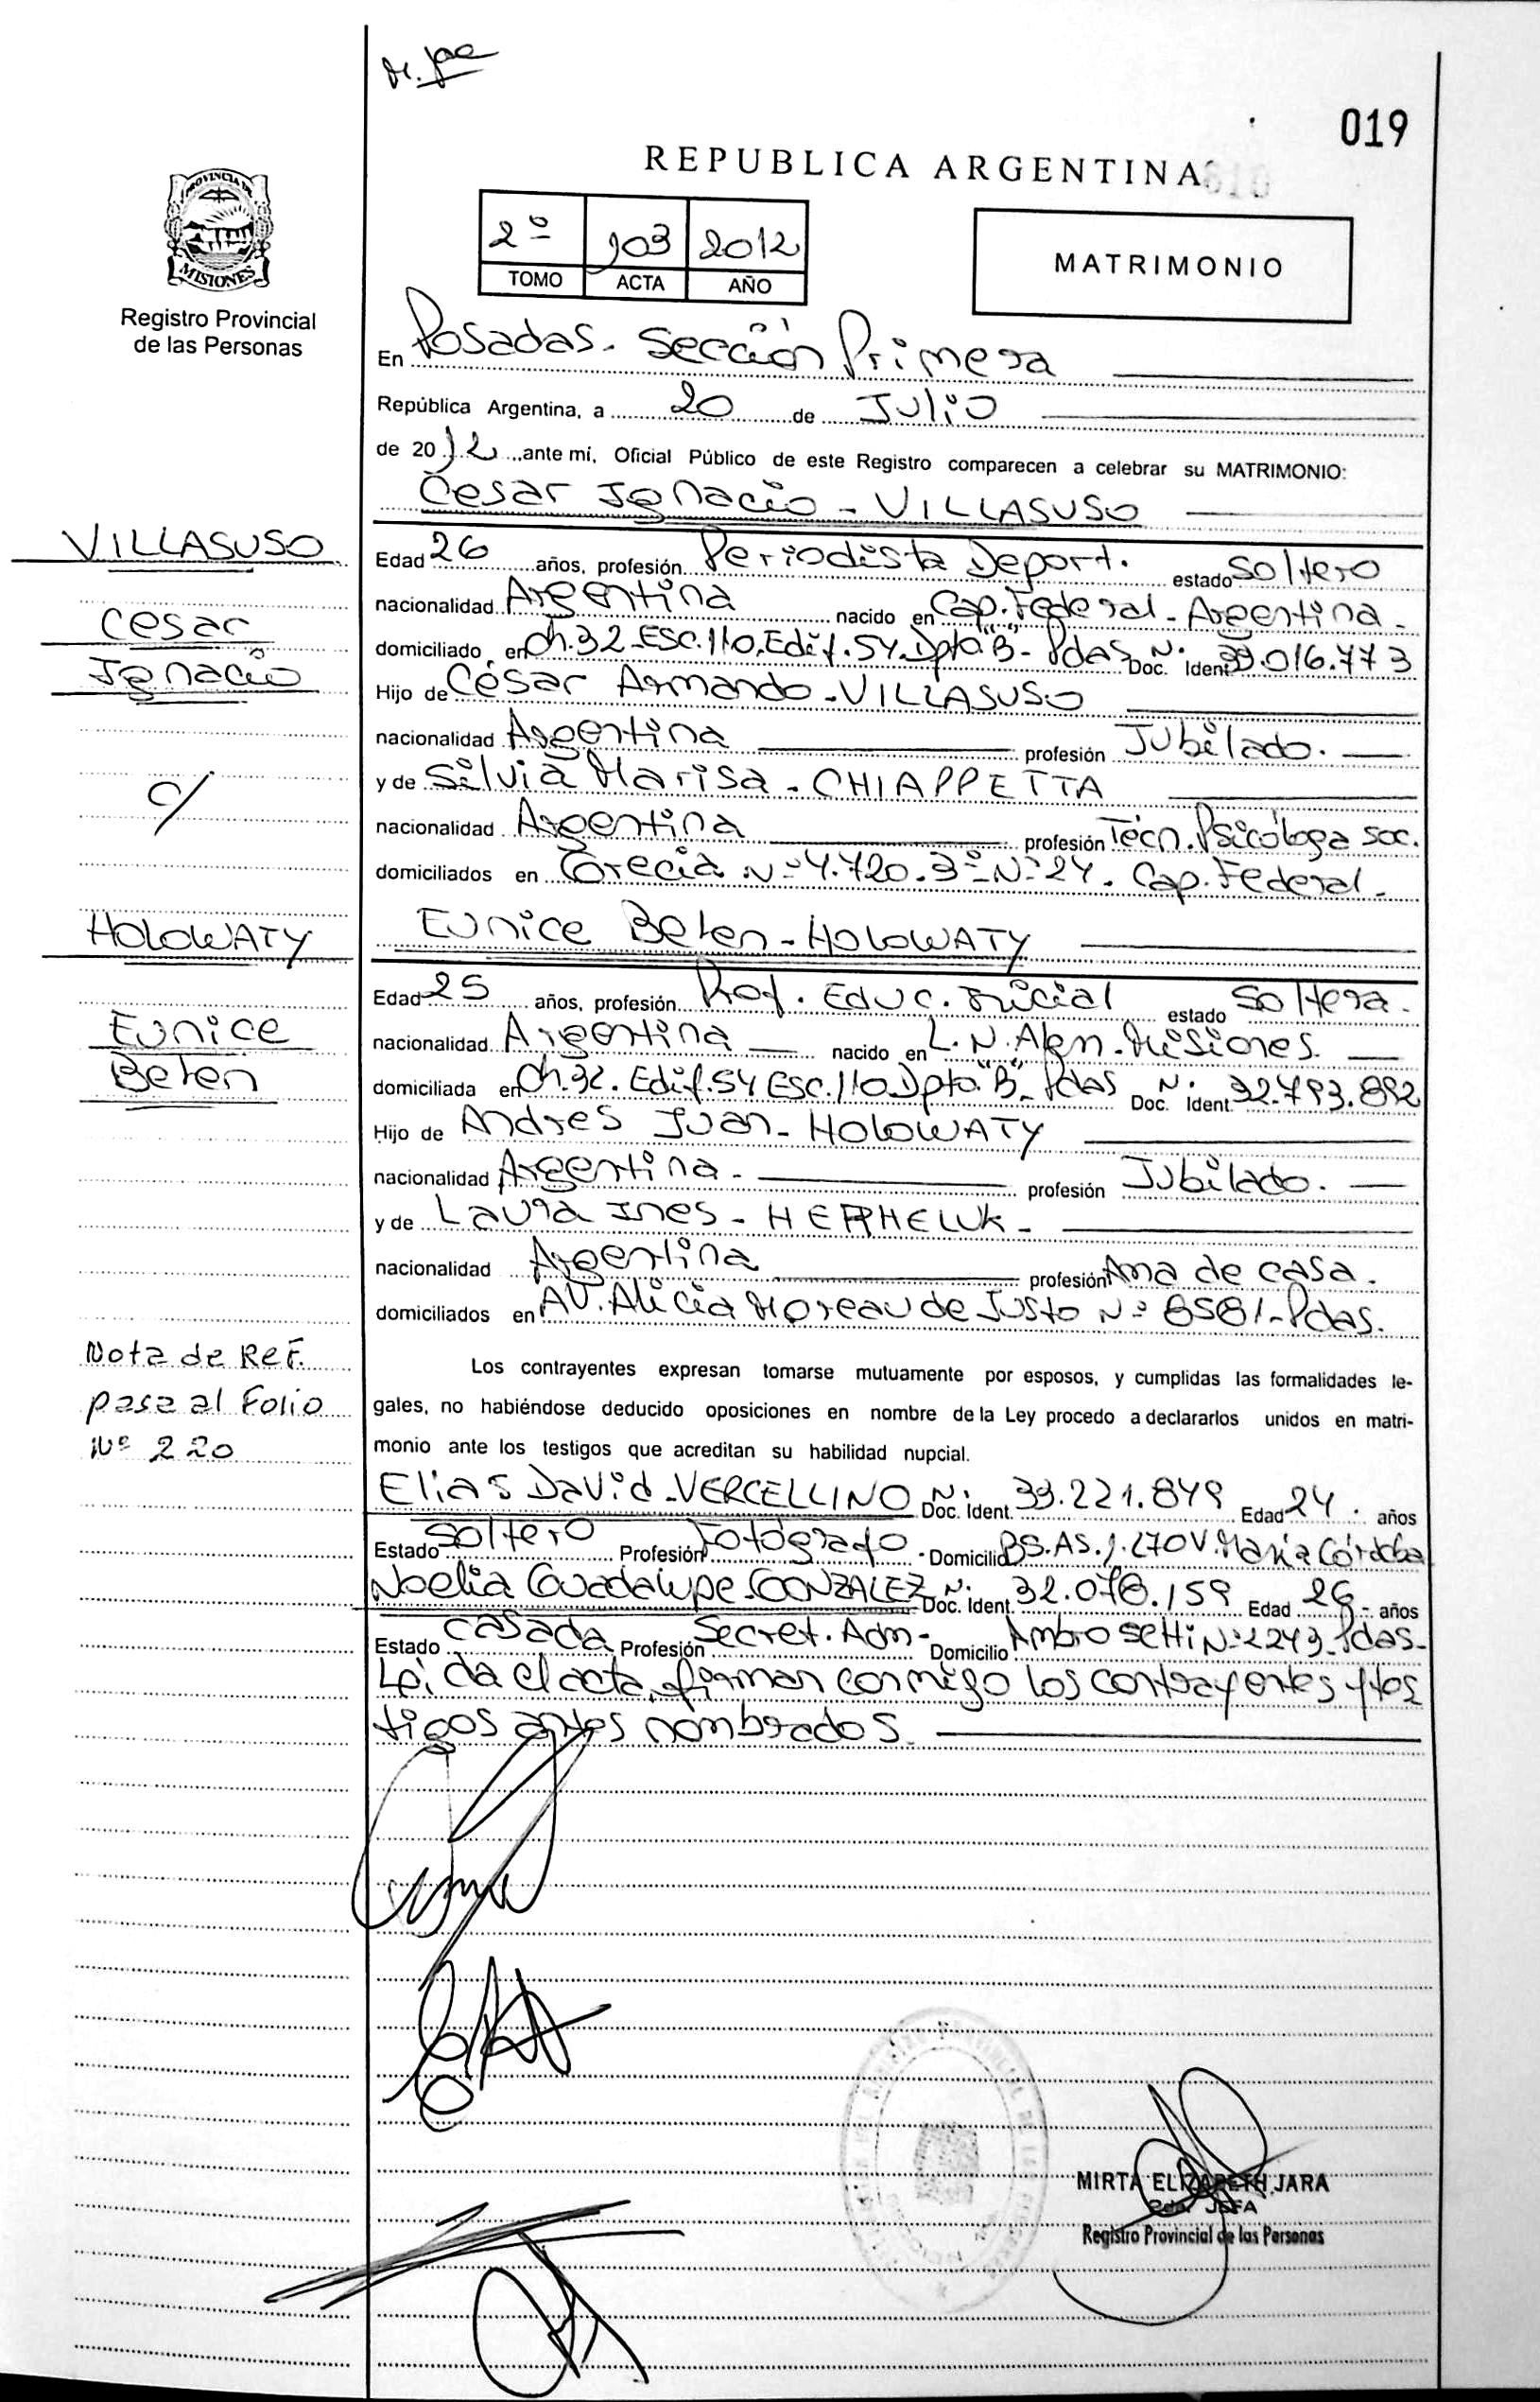 019
REPUBLICA ARGENTINA
PROVINCIA DE
MISIONES
Registro Provincial
de las Personas
2º 103 2012
TOMO ACTA AÑO
MATRIMONIO
En Posadas. Sección Primera
República Argentina, a 20 de Julio
de 2012 ante mí, Oficial Público de este Registro comparecen a celebrar su MATRIMONIO:
Cesar Ignacio - VILLASUSO
VILLASUSO
Cesar
Ignacio
c/
HOLOWATY
Eunice
Belen
Edad 26 años, profesión Periodista Deport. estado Soltero
nacionalidad Argentina nacido en Cap. Federal - Argentina.
domiciliado en Ch.32-ESC.110.Edif.54.Dpto."B"- Pdas N. Doc. Ident. 39.016.773
Hijo de César Armando - VILLASUSO
nacionalidad Argentina profesión Jubilado.
y de Silvia Marisa - CHIAPPETTA
nacionalidad Argentina profesión Técn. Psicóloga soc.
domiciliados en Grecia Nº 4.720.3º Nº 24. Cap. Federal.
Eunice Belen - HOLOWATY
Edad 25 años, profesión Prof. Educ. Inicial estado Soltera.
nacionalidad Argentina nacido en L.N. Alem. Misiones.
domiciliada en Ch.32. Edif.54 ESC.110 Dpto."B"- Pdas N. Doc. Ident. 32.793.892
Hijo de Andres Juan - HOLOWATY
nacionalidad Argentina. profesión Jubilado.
y de Laura Ines - HERHELUK -
nacionalidad Argentina profesión Ama de casa.
domiciliados en AV. Alicia Moreau de Justo Nº 8581 - Pdas.
Nota de Ref.
pasa al Folio
Nº 220
Los contrayentes expresan tomarse mutuamente por esposos, y cumplidas las formalidades le-
gales, no habiéndose deducido oposiciones en nombre de la Ley procedo a declararlos unidos en matri-
monio ante los testigos que acreditan su habilidad nupcial.
Elias David - VERCELLINO N. Doc. Ident. 33.221.849 Edad 24. años
Estado Soltero Profesión Fotógrafo - Domicilio BS.AS. 1.270 V. María Córdoba
Noelia Guadalupe - GONZALEZ N. Doc. Ident. 32.078.159 Edad 26 - años
Estado Casada Profesión Secret. Adm - Domicilio Ambrosetti Nº 2243 Pdas -
Leída el acta, firman conmigo los contrayentes y tes
tigos antes nombrados.
MIRTA ELIZABETH JARA
JEFA
Registro Provincial de las Personas